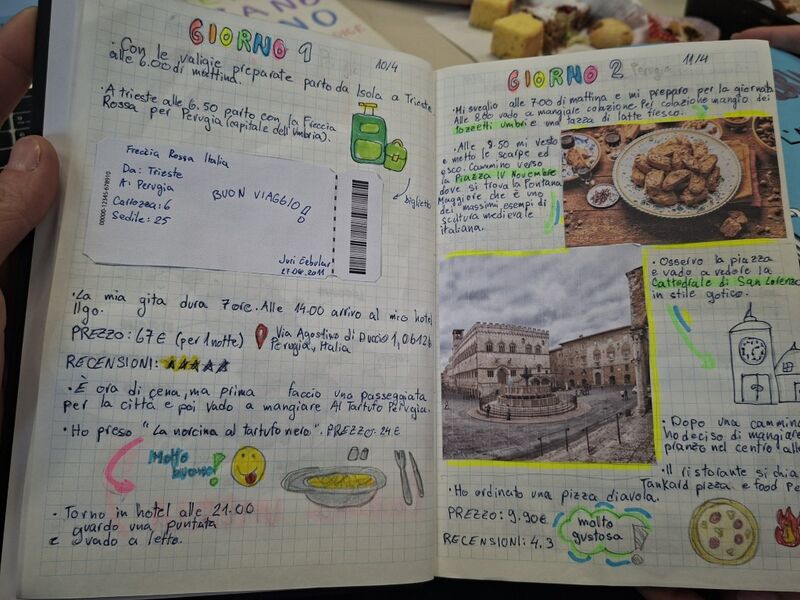 GIORNO 1
10/4
• Con le valigie preparate parto da Isola a Trieste
alle 6.00 di mattina.
• A trieste alle 6.50 parto con la Freccia
Rossa per Perugia (capitale dell'Umbria).
Freccia Rossa Italia
Da: Trieste
A: Perugia
Carrozza: 6
Sedile: 25
BUON VIAGGIO!
00000-12345-678910
27.04.2011
biglietto
• La mia gita dura 7 ore. Alle 14.00 arrivo al mio hotel
Ilgo.
PREZZO: 67 € (per 1 notte)
Via Agostino di Duccio 1, 06126
Perugia, Italia
RECENSIONI:
• È ora di cena, ma prima faccio una passeggiata
per la città e poi vado a mangiare Al Tartufo Perugia.
• Ho preso "La norcina al tartufo nero". PREZZO: 24 €
Molto
buono!
• Torno in hotel alle 21.00
guardo una puntata
e vado a letto.
GIORNO 2
Perugia
11/4
• Mi sveglio alle 7.00 di mattina e mi preparo per la giornata
Alle 8.00 vado a mangiare colazione. Per colazione mangio dei
tozzetti umbri e una tazza di latte fresco.
• Alle 8.50 mi vesto
e metto le scarpe ed
esco. Cammino verso
la Piazza IV Novembre
dove si trova la Fontana
Maggiore che è uno
dei massimi esempi di
scultura medievale
italiana.
• Osservo la piazza
e vado a vedere la
Cattedrale di San Lorenzo
in stile gotico.
• Dopo una cammin
ho deciso di mangiare
pranzo nel centro
• Il ristorante si chia
Tankard pizza e food Pe
• Ho ordinato una pizza diavola.
PREZZO: 9.90€
RECENSIONI: 4.3
molto
gustosa!